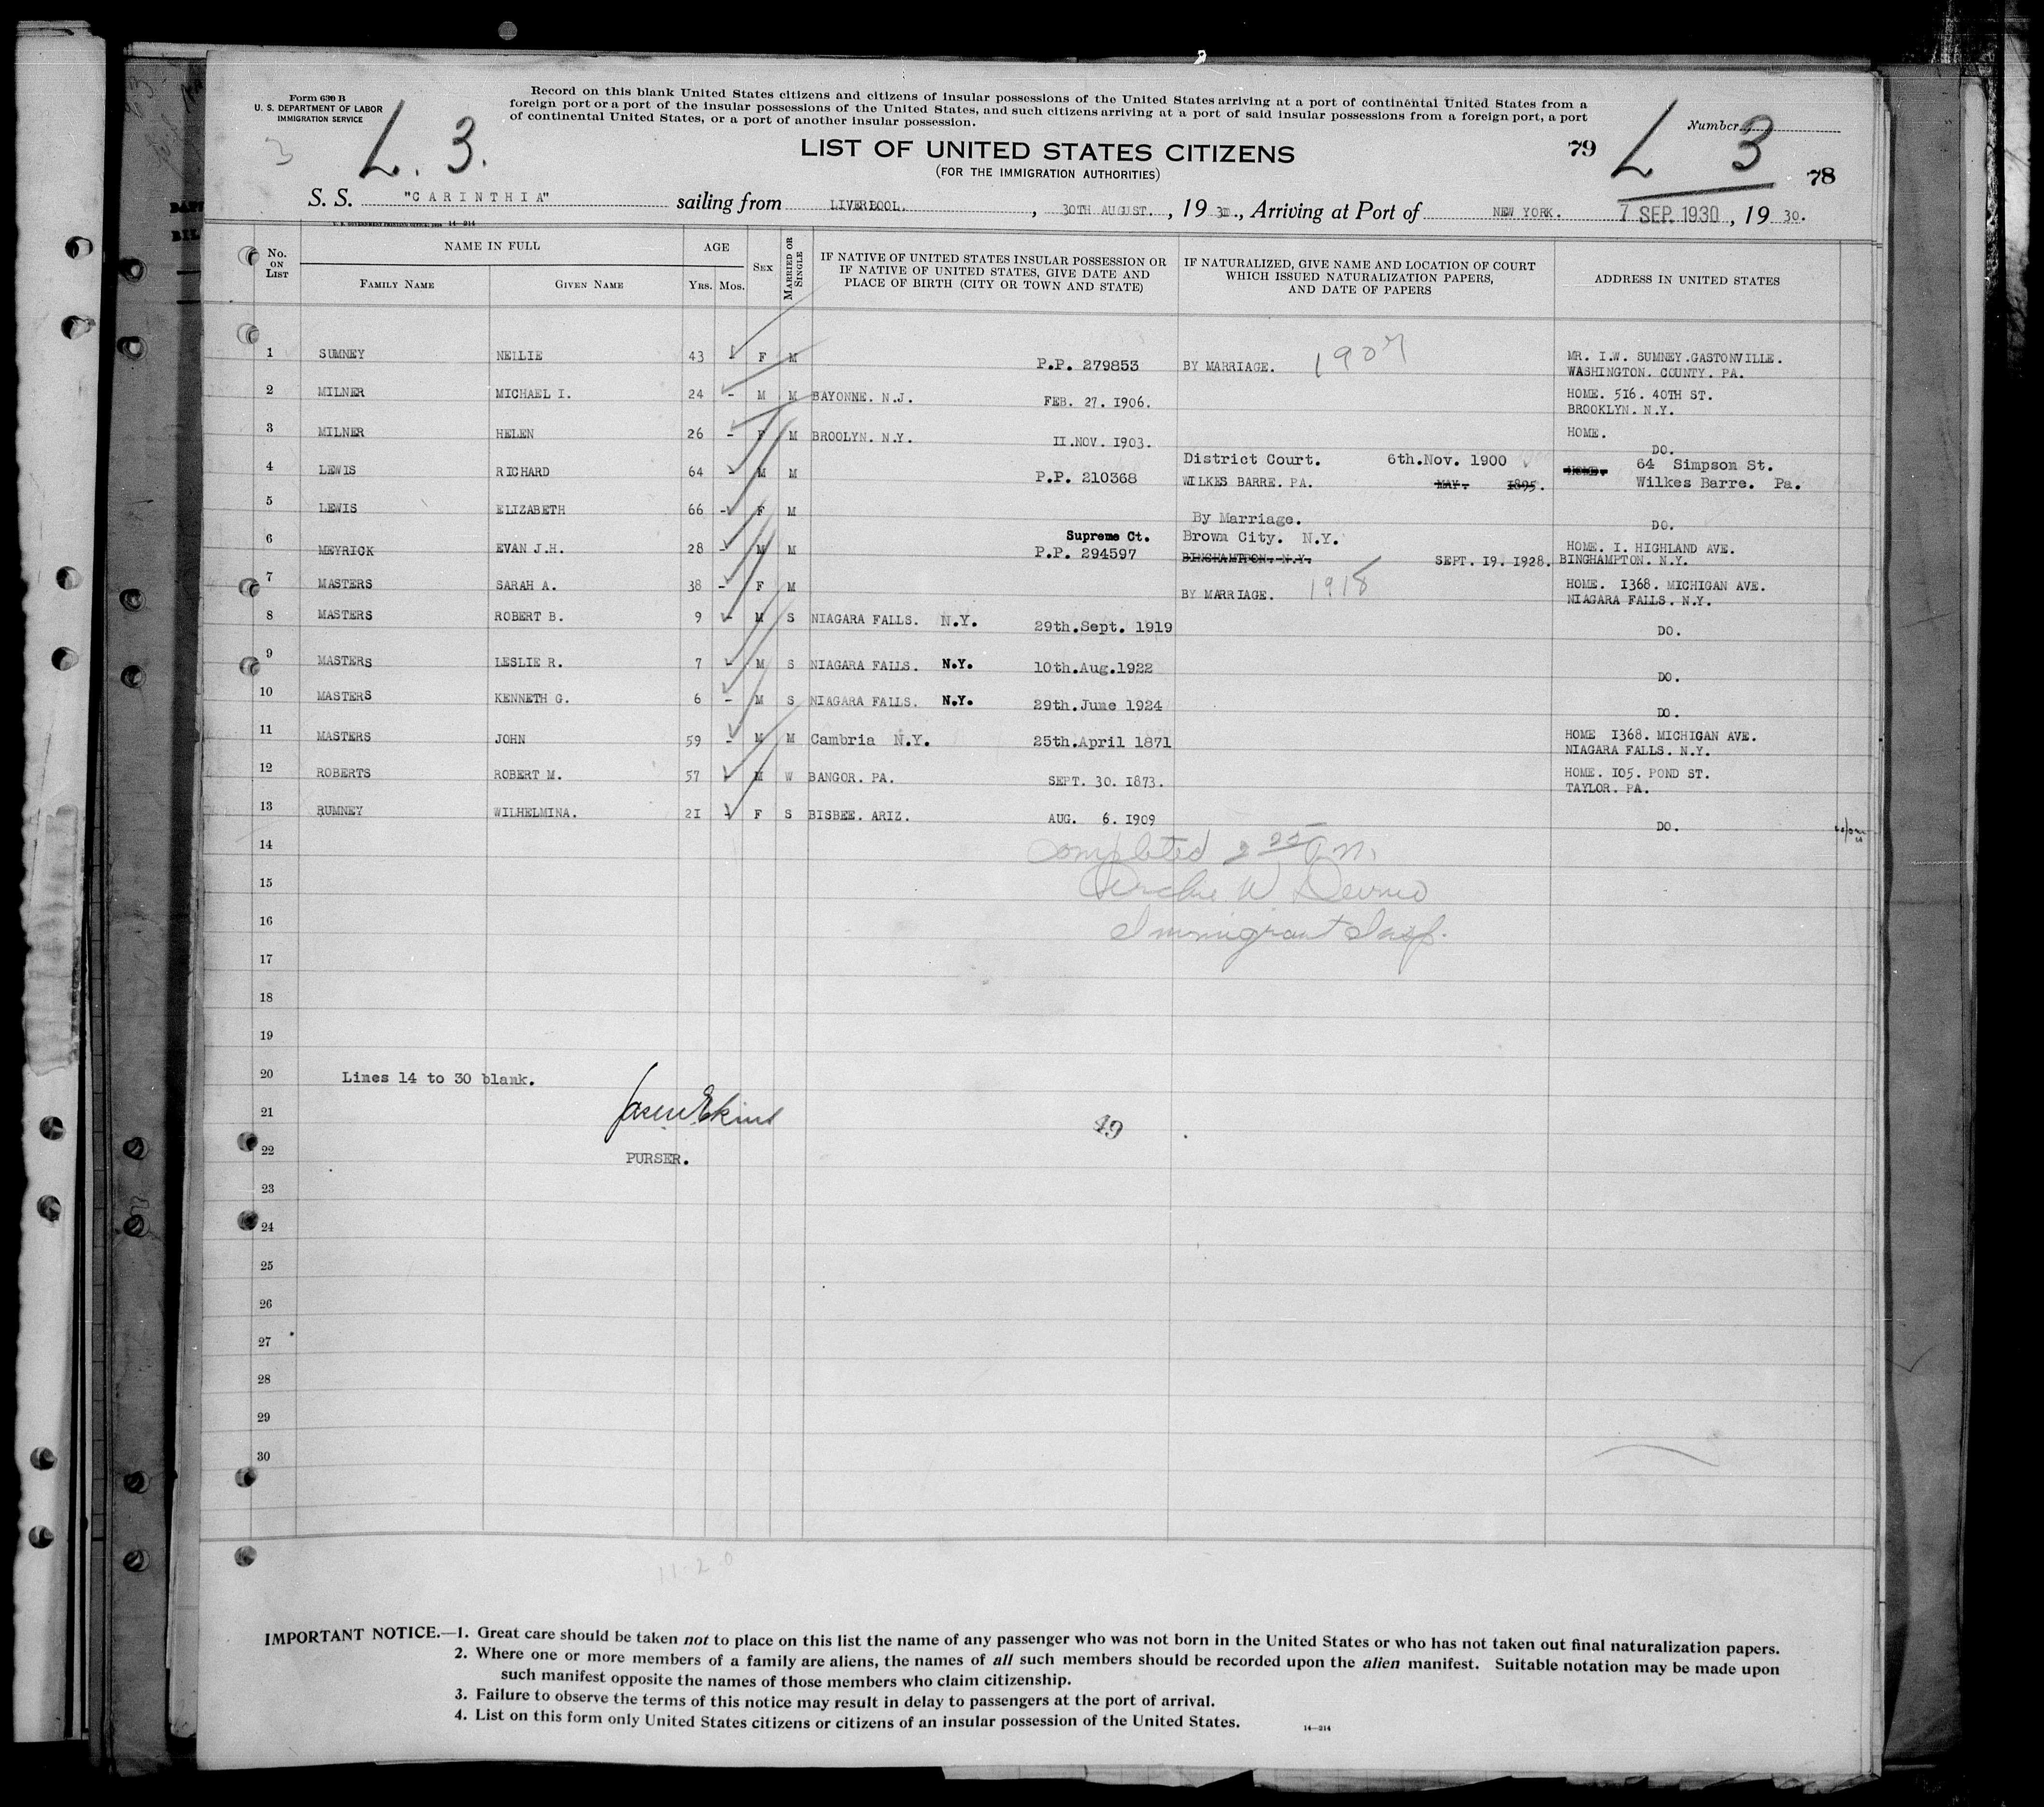 Form 630 B
U. S. DEPARTMENT OF LABOR
IMMIGRATION SERVICE
Record on this blank United States citizens and citizens of insular possessions of the United States arriving at a port of continental United States from a
foreign port or a port of the insular possessions of the United States, and such citizens arriving at a port of said insular possessions from a foreign port, a port
of continental United States, or a port of another insular possession.
3
L. 3.
Number
LIST OF UNITED STATES CITIZENS
(FOR THE IMMIGRATION AUTHORITIES)
79
L 3
78
S. S. "CARINTHIA" sailing from LIVERPOOL. , 30TH AUGUST. , 19 30., Arriving at Port of NEW YORK. 7 SEP. 1930 , 19 30.
U. S. GOVERNMENT PRINTING OFFICE: 1928 14-214
No. ON LIST
NAME IN FULL
FAMILY NAME
GIVEN NAME
AGE
YRS. MOS.
SEX
MARRIED OR SINGLE
IF NATIVE OF UNITED STATES INSULAR POSSESSION OR
IF NATIVE OF UNITED STATES, GIVE DATE AND
PLACE OF BIRTH (CITY OR TOWN AND STATE)
IF NATURALIZED, GIVE NAME AND LOCATION OF COURT
WHICH ISSUED NATURALIZATION PAPERS,
AND DATE OF PAPERS
ADDRESS IN UNITED STATES
1 SUMNEY NELLIE 43 F M P.P. 279853 BY MARRIAGE. 1907 MR. I.W. SUMNEY.GASTONVILLE.
WASHINGTON. COUNTY. PA.
2 MILNER MICHAEL I. 24 - M M BAYONNE. N.J. FEB. 27. 1906. HOME. 516. 40TH ST.
BROOKLYN. N.Y.
3 MILNER HELEN 26 - F M BROOLYN. N.Y. II.NOV. 1903. HOME.
DO.
4 LEWIS RICHARD 64 - M M P.P. 210368 District Court. 6th.Nov. 1900
WILKES BARRE. PA. MAY. 1895. HOME. 64 Simpson St.
Wilkes Barre. Pa.
5 LEWIS ELIZABETH 66 - F M By Marriage. DO.
6 MEYRICK EVAN J.H. 28 - M M Supreme Ct.
P.P. 294597 Brown City. N.Y.
BINGHAMPTON. N.Y. SEPT. 19. 1928. HOME. I. HIGHLAND AVE.
BINGHAMPTON. N.Y.
7 MASTERS SARAH A. 38 - F M BY MARRIAGE. 1918 HOME. 1368. MICHIGAN AVE.
NIAGARA FALLS. N.Y.
8 MASTERS ROBERT B. 9 - M S NIAGARA FALLS. N.Y. 29th.Sept. 1919 DO.
9 MASTERS LESLIE R. 7 - M S NIAGARA FALLS. N.Y. 10th.Aug.1922 DO.
10 MASTERS KENNETH G. 6 - M S NIAGARA FALLS. N.Y. 29th.June 1924 DO.
11 MASTERS JOHN 59 - M M Cambria N.Y. 25th.April 1871 HOME 1368. MICHIGAN AVE.
NIAGARA FALLS. N.Y.
12 ROBERTS ROBERT M. 57 - M W BANGOR. PA. SEPT. 30. 1873. HOME. 105. POND ST.
TAYLOR. PA.
13 RUMNEY WILHELMINA. 21 - F S BISBEE. ARIZ. AUG. 6. 1909 DO.
14
Completed 2 25 P.m.
15
Archie W.
16
Immigrant Insp.
17
18
19
20
Lines 14 to 30 blank.
21
49
22
PURSER.
23
24
25
26
27
28
29
30
11-20
IMPORTANT NOTICE.—1. Great care should be taken not to place on this list the name of any passenger who was not born in the United States or who has not taken out final naturalization papers.
2. Where one or more members of a family are aliens, the names of all such members should be recorded upon the alien manifest. Suitable notation may be made upon
such manifest opposite the names of those members who claim citizenship.
3. Failure to observe the terms of this notice may result in delay to passengers at the port of arrival.
4. List on this form only United States citizens or citizens of an insular possession of the United States.
14—214